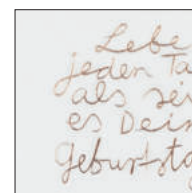 Lebe
jeden Ta
als sei
es Dein
Geburtsta